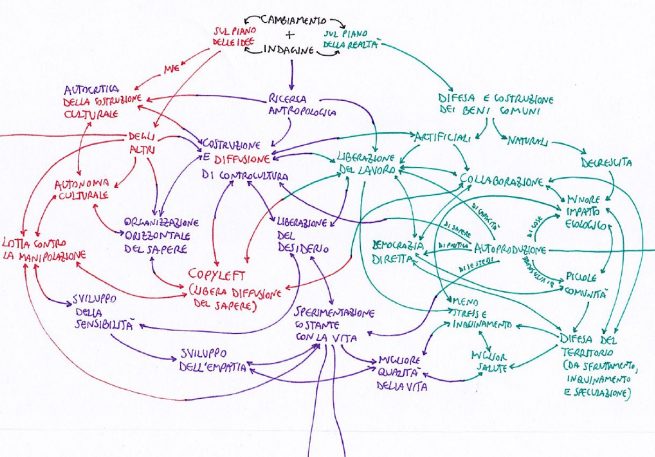 CAMBIAMENTO
+
INDAGINE
SUL PIANO
DELLE IDEE
SUL PIANO
DELLA REALTÀ
MIE
AUTOCRITICA
DELLA COSTRUZIONE
CULTURALE
RICERCA
ANTROPOLOGICA
DIFESA E COSTRUZIONE
DEI BENI COMUNI
DEGLI
ALTRI
COSTRUZIONE
E DIFFUSIONE
DI CONTROCULTURA
ARTIFICIALI
NATURALI
LIBERAZIONE
DEL LAVORO
DECRESCITA
COLLABORAZIONE
AUTONOMIA
CULTURALE
MINORE
IMPATTO
ECOLOGICO
ORGANIZZAZIONE
ORIZZONTALE
DEL SAPERE
LIBERAZIONE
DEL
DESIDERIO
DI SAPERE
DI COSE
LOTTA CONTRO
LA MANIPOLAZIONE
DEMOCRAZIA
DIRETTA
DI POLITICA
AUTOPRODUZIONE
COPYLEFT
(LIBERA DIFFUSIONE
DEL SAPERE)
PICCOLE
COMUNITÀ
SVILUPPO
DELLA
SENSIBILITÀ
SPERIMENTAZIONE
COSTANTE
CON LA VITA
MENO
STRESS E
INQUINAMENTO
SVILUPPO
DELL'EMPATIA
MIGLIORE
QUALITÀ
DELLA VITA
MIGLIOR
SALUTE
DIFESA DEL
TERRITORIO
(DA SFRUTTAMENTO,
INQUINAMENTO
E SPECULAZIONE)